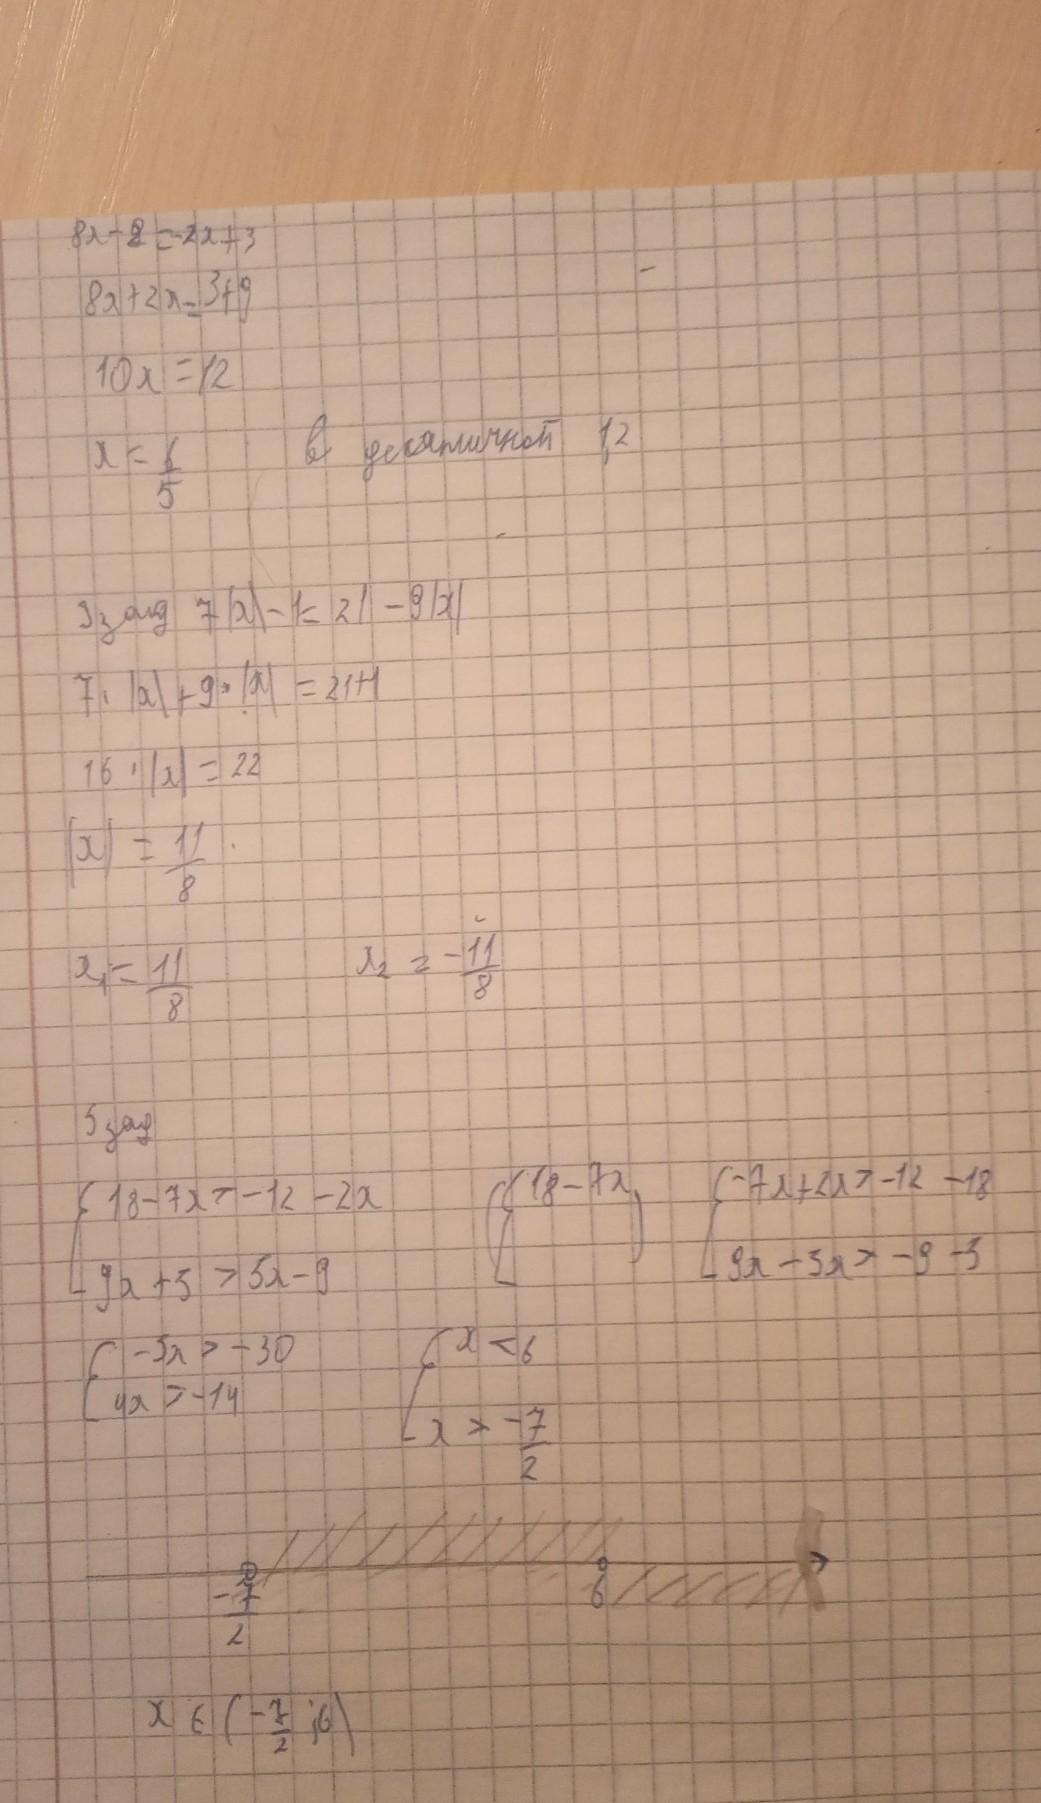 8x-9=-2x+3
8x+2x=3+9
10x=12
x=6/5 в десятичной 1,2
3 зад 7|x|-1=21-9|x|
7·|x|+9·|x|=21+1
16·|x|=22
|x|=11/8
x₁=11/8 x₂=-11/8
5 зад
{18-7x>-12-2x {18-7x) {-7x+2x>-12-18
9x+5>5x-9 9x-5x>-9-5
{-5x>-30 {x<6
4x>-14 x>-7/2
-7/2 6
x∈(-7/2;6)